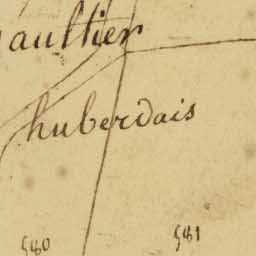 aultier
huberdais
580 581